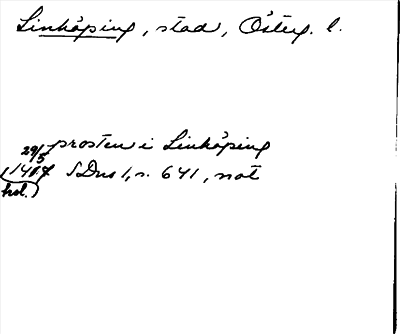 Linköping, stad, Österg. l.
prosten i Linköping
29/5 1407 SDns 1, s. 641, not
(hol.)